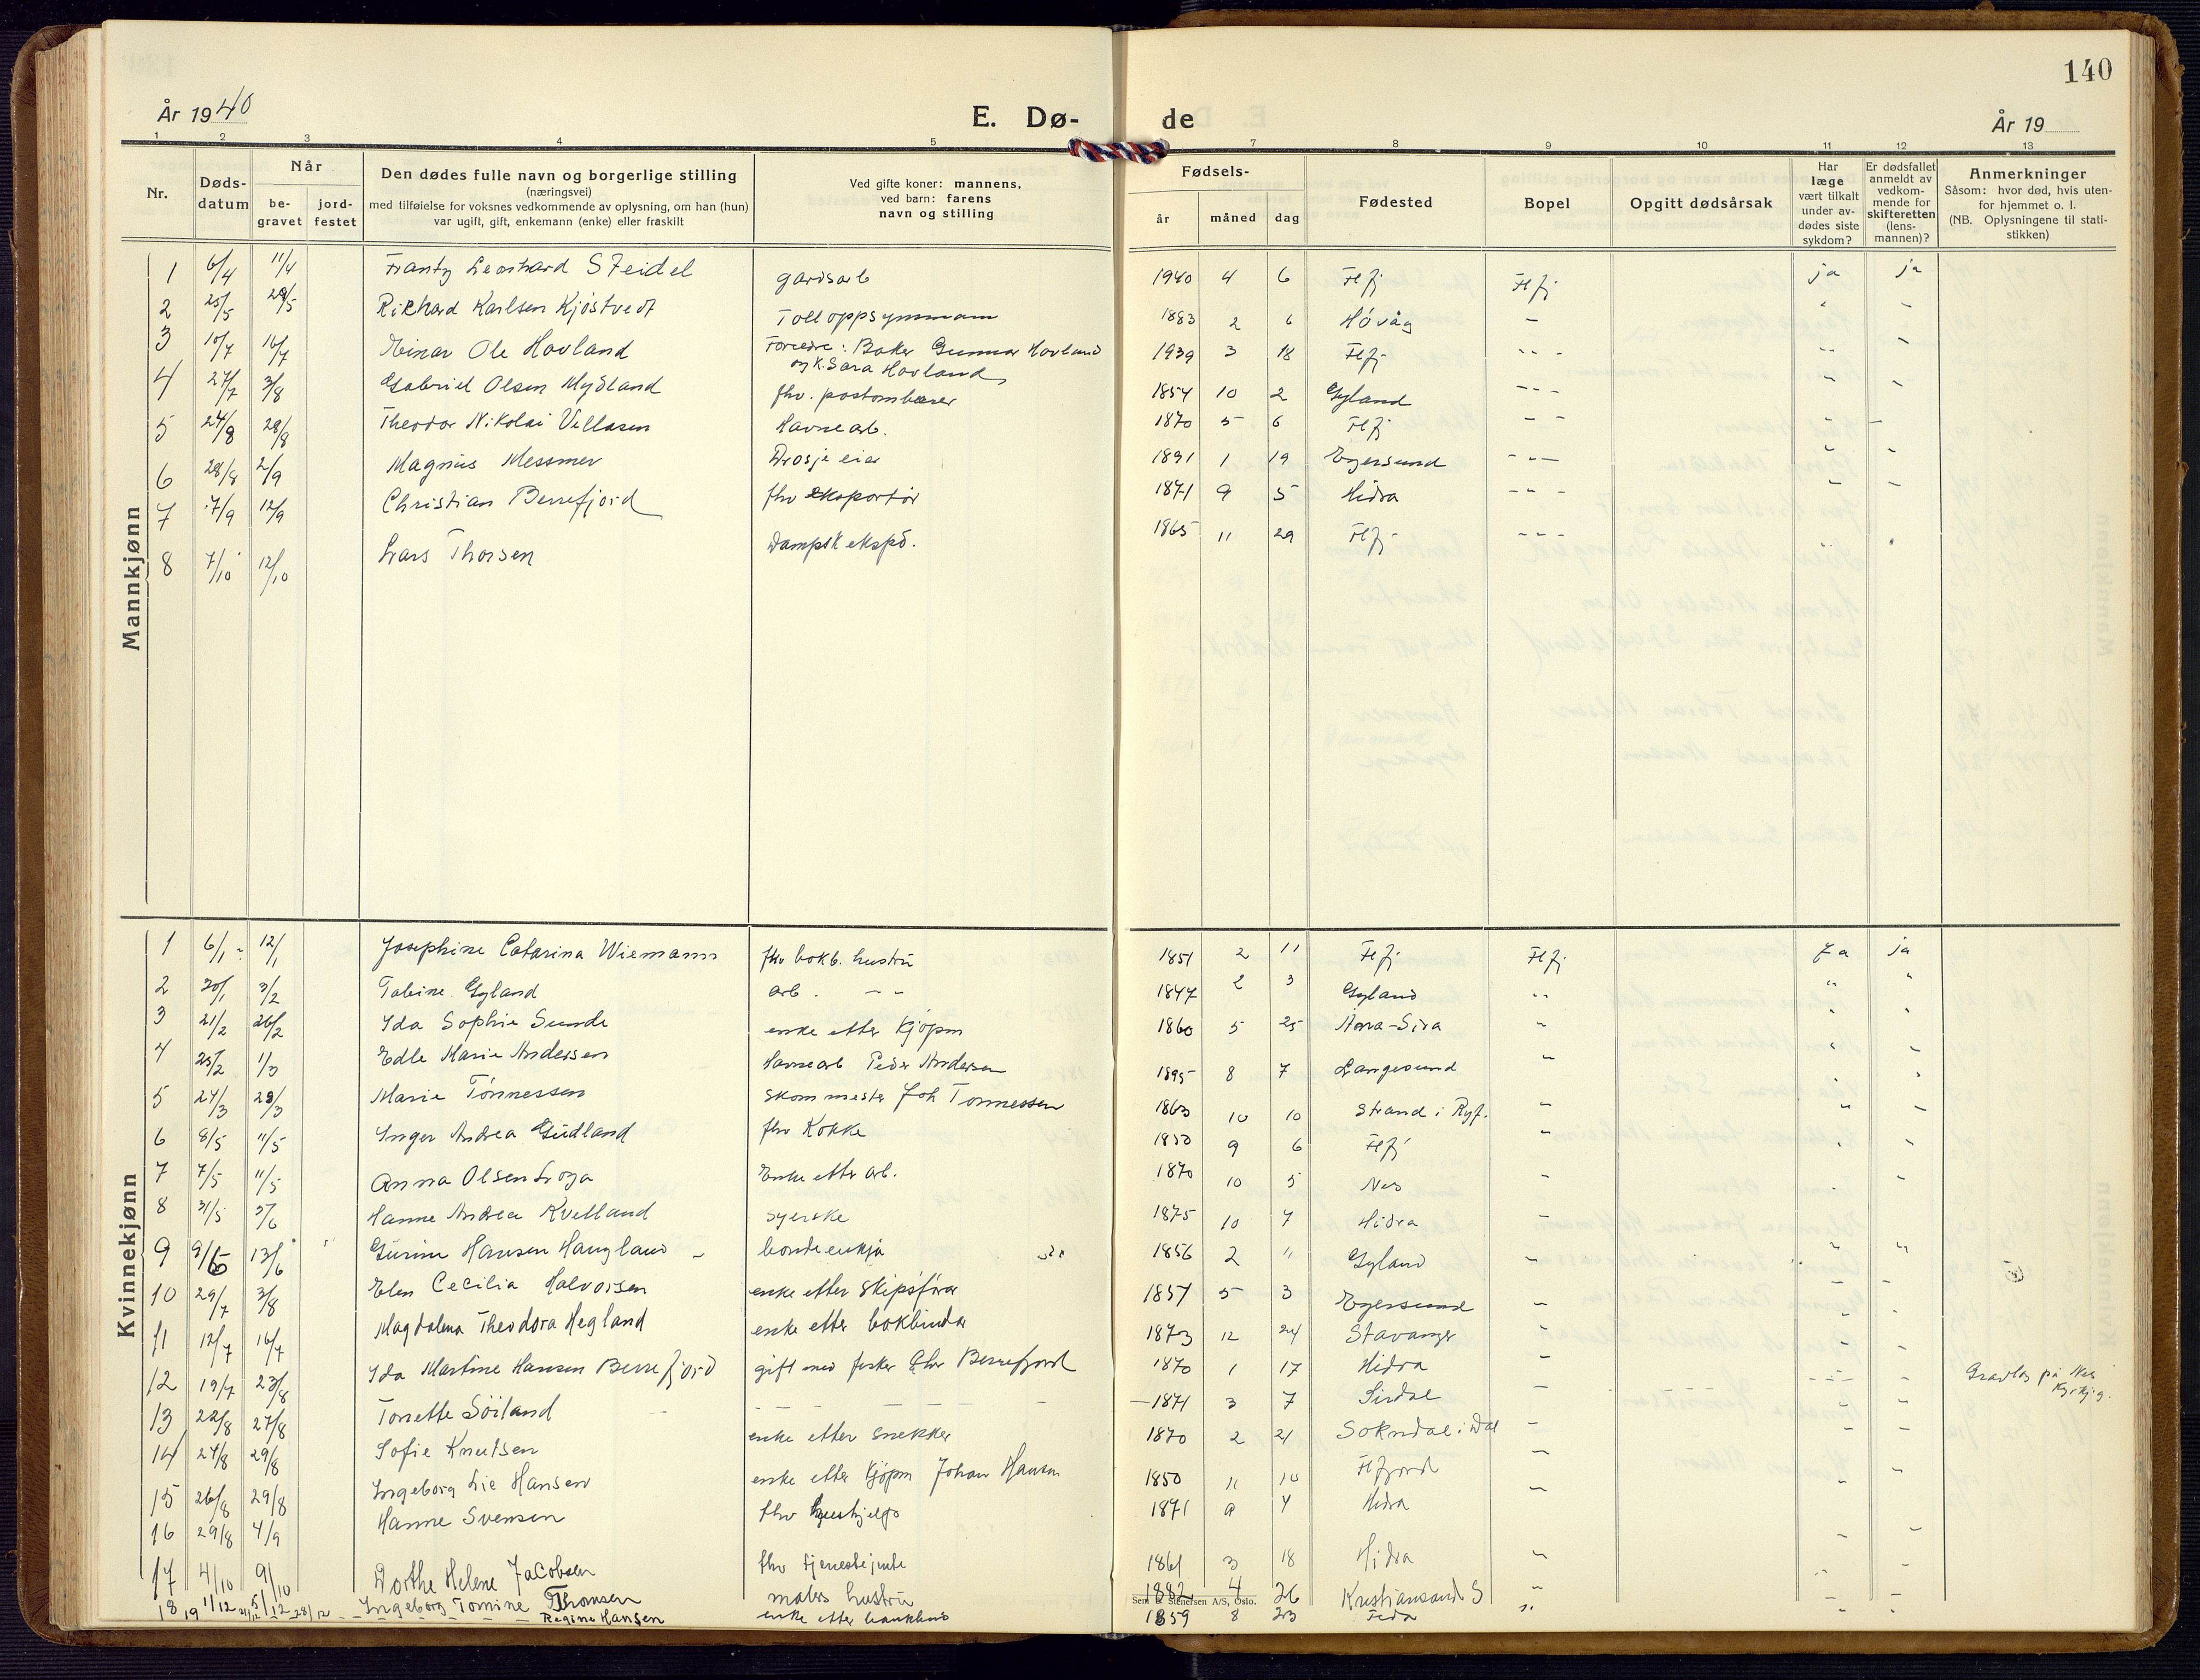 140
År 1940 E. Dø- de År 19
1 2 3 4 5 7 8 9 10 11 12 13
Nr. Døds-datum Når be-gravet jord-festet
Den dødes fulle navn og borgerlige stilling
(næringsvei)
med tilføielse for voksnes vedkommende av oplysning, om han (hun)
var ugift, gift, enkemann (enke) eller fraskilt
Ved gifte koner: mannens,
ved barn: farens
navn og stilling
Fødsels-
år måned dag
Fødested
Bopel
Opgitt dødsårsak
Har læge vært tilkalt under av-dødes siste sykdom?
Er dødsfallet anmeldt av vedkom-mende for skifteretten (lens-mannen)?
Anmerkninger
Såsom: hvor død, hvis uten-
for hjemmet o. l.
(NB. Oplysningene til stati-
stikken)
Mannkjønn
1 6/4 11/4 Frantz Leonhard Steidel gardsarb 1940 4 6 Flfj Flfj ja ja
2 25/5 29/5 Rikhard Karlsen Kjøstvedt Tolloppsynsmann 1883 2 6 Høvåg
3 10/7 16/7 Einar Ole Hovland Foreldre: Baker Gunnar Hovland og k. Sara Hovland 1939 3 18 Flfj
4 27/7 3/8 Gabriel Olsen Mydland fhv. postombærer 1854 10 2 Gyland
5 24/8 28/8 Theodor Nikolai Villasen Havnearb. 1870 5 6 Flfj
6 28/8 2/9 Magnus Messmer Drosjeeier 1891 1 19 Egersund
7 7/9 12/9 Christian Berrefjord fhv eksportør 1871 9 5 Hidra
8 7/10 12/10 Lars Thorsen Dampsk ekspd. 1865 11 29 Flfj
Kvinnekjønn
1 6/1 12/1 Josephine Catarina Wiemann fhv bokb. hustru 1851 2 11 Flfj Flfj Ja ja
2 30/1 3/2 Tobine Gyland arb. - - 1847 2 3 Gyland
3 21/2 26/2 Ida Sophie Sunde enke etter kjøpm 1860 5 25 Åna-Sira
4 25/2 1/3 Edle Marie Andersen Havnearb Peder Andersen 1895 8 7 Langesund
5 24/3 29/3 Marie Tønnessen Skom mester Joh Tønnessen 1863 10 10 Strand i Ryf.
6 8/5 11/5 Inger Andrea Gudland fhv Kokke 1850 9 6 Flfj
7 7/5 11/5 Anna Olsen Loga Enke etter arb. 1870 10 5 Nes
8 31/5 5/6 Hanne Andrea Kvelland Syerske 1875 10 7 Hidra
9 9/6 13/6 Gurine Hansen Haugland - bondeenkja 1856 2 11 Gyland
10 29/7 3/8 Elen Cecilia Halvorsen enke etter skipsfører 1857 5 3 Egersund
11 12/7 16/7 Magdalena Theodora Hegland enke etter bokbinder 1873 12 24 Stavanger
12 19/7 23/8 Ida Martine Hansen Berrefjord gift med fisker Chr Berrefjord 1870 1 17 Hidra Gravlag på Nes Kyrkjeg.
13 22/8 27/8 Tonette Söiland - - - - - - 1871 3 7 Sirdal
14 24/8 29/8 Sofie Knutsen enke etter snekker 1870 2 21 Sokndal i Dal
15 26/8 29/8 Ingeborg Lie Hansen enke etter kjøpm Johan Hansen 1850 11 10 Flfjord
16 29/8 4/9 Hanne Svensen fhv hushjelp 1871 9 4 Hidra
17 4/10 9/10 Dorthe Helene Jacobsen fhv tjenestejente 1861 3 18 Hidra
18 1/12 5/12 Ingeborg Tomine Thomsen malers hustru 1882 4 26 Kristiansand S
Sem & Stenersen A/S, Oslo.
19 21/12 28/12 Regine Hansen enke etter 1859 8 23 Feda